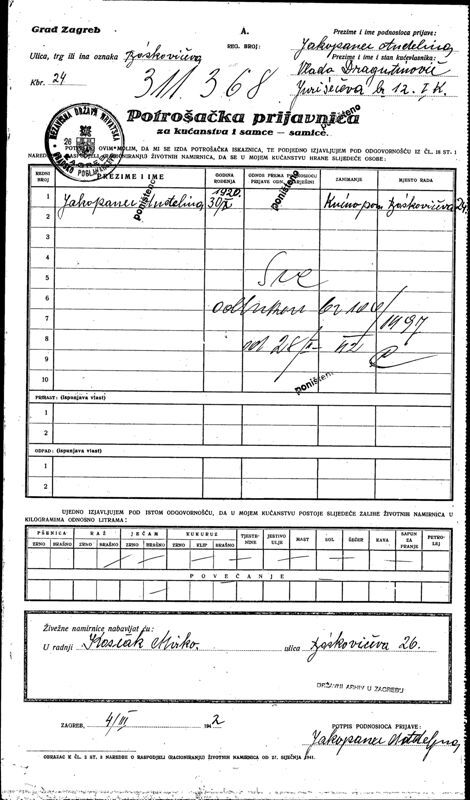 Grad Zagreb
A.
Prezime i ime podnosioca prijave:
REG. BROJ:
Jakopanec Anđelina
Ulica, trg ili ina oznaka Bóškovićeva
Prezime i ime i stan kućevlasnika:
Vlada Dragutinović
Kbr. 24
311 368
Jurišićeva br 12. I K.
Potrošačka prijavnica
za kućanstva i samce — samice.
poništeno
NEZAVISNA DRŽAVA HRVATSKA
26
OVIM MOLIM, DA MI SE IZDA POTROŠAČKA ISKAZNICA, TE PODJEDNO IZJAVLJUJEM POD ODGOVORNOŠĆU IZ ČL. 18 ST. 1
ŽIVOTNIH NAMIRNICA, DA SE U MOJEM KUĆANSTVU HRANE SLIJEDEĆE OSOBE:
REDNI BROJ
PREZIME I IME
GODINA ROĐENJA
ODNOS PREMA
ZANIMANJE
MJESTO RADA
1 Jakopanec Anđelina 1920. 30/X Kućno pom. Bóškovićeva 24
poništeno
poništeno
2
3
4
5 Sve
6 br 106/1997
7
8 od 28/ 42
9
10
poništeno
PRIRAST: (Ispunjava vlast)
1
2
OTPAD: (Ispunjava vlast)
1
2
UJEDNO IZJAVLJUJEM POD ISTOM ODGOVORNOŠĆU, DA U MOJEM KUĆANSTVU POSTOJE SLIJEDEĆE ZALIHE ŽIVOTNIH NAMIRNICA U
KILOGRAMIMA ODNOSNO LITRAMA:
PŠENICA RAŽ JEČAM KUKURUZ TJESTENINE JESTIVO ULJE MAST SOL ŠEĆER KAVA SAPUN ZA PRANJE PETROLEJ
ZRNO BRAŠNO ZRNO BRAŠNO ZRNO BRAŠNO ZRNO KLIP BRAŠNO
POVEĆANJE
Živežne namirnice nabavljat ću:
U radnji Kosčák Mirko. ulica Bóškovićeva 26.
DRŽAVNI ARHIV U ZAGREBU
ZAGREB, 4/III 1942
POTPIS PODNOSIOCA PRIJAVE:
Jakopanec Anđelina
OBRAZAC K ČL. 2 ST. 2 NAREDBE O RASPODJELI (RACIONIRANJU) ŽIVOTNIH NAMIRNICA OD 27. SIJEČNJA 1941.